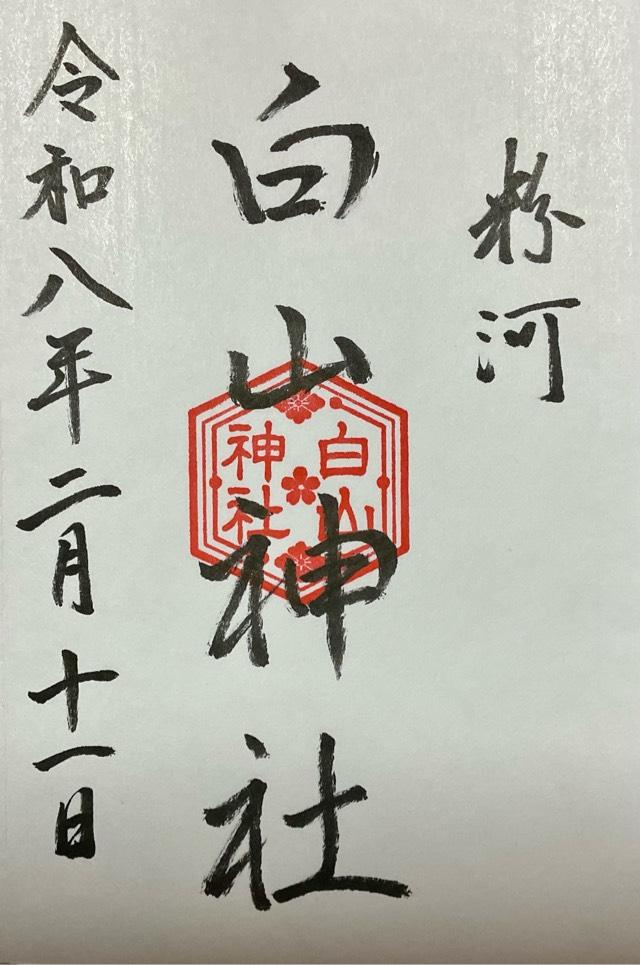 粉河
白山神社
白山
神社
令和八年二月十一日